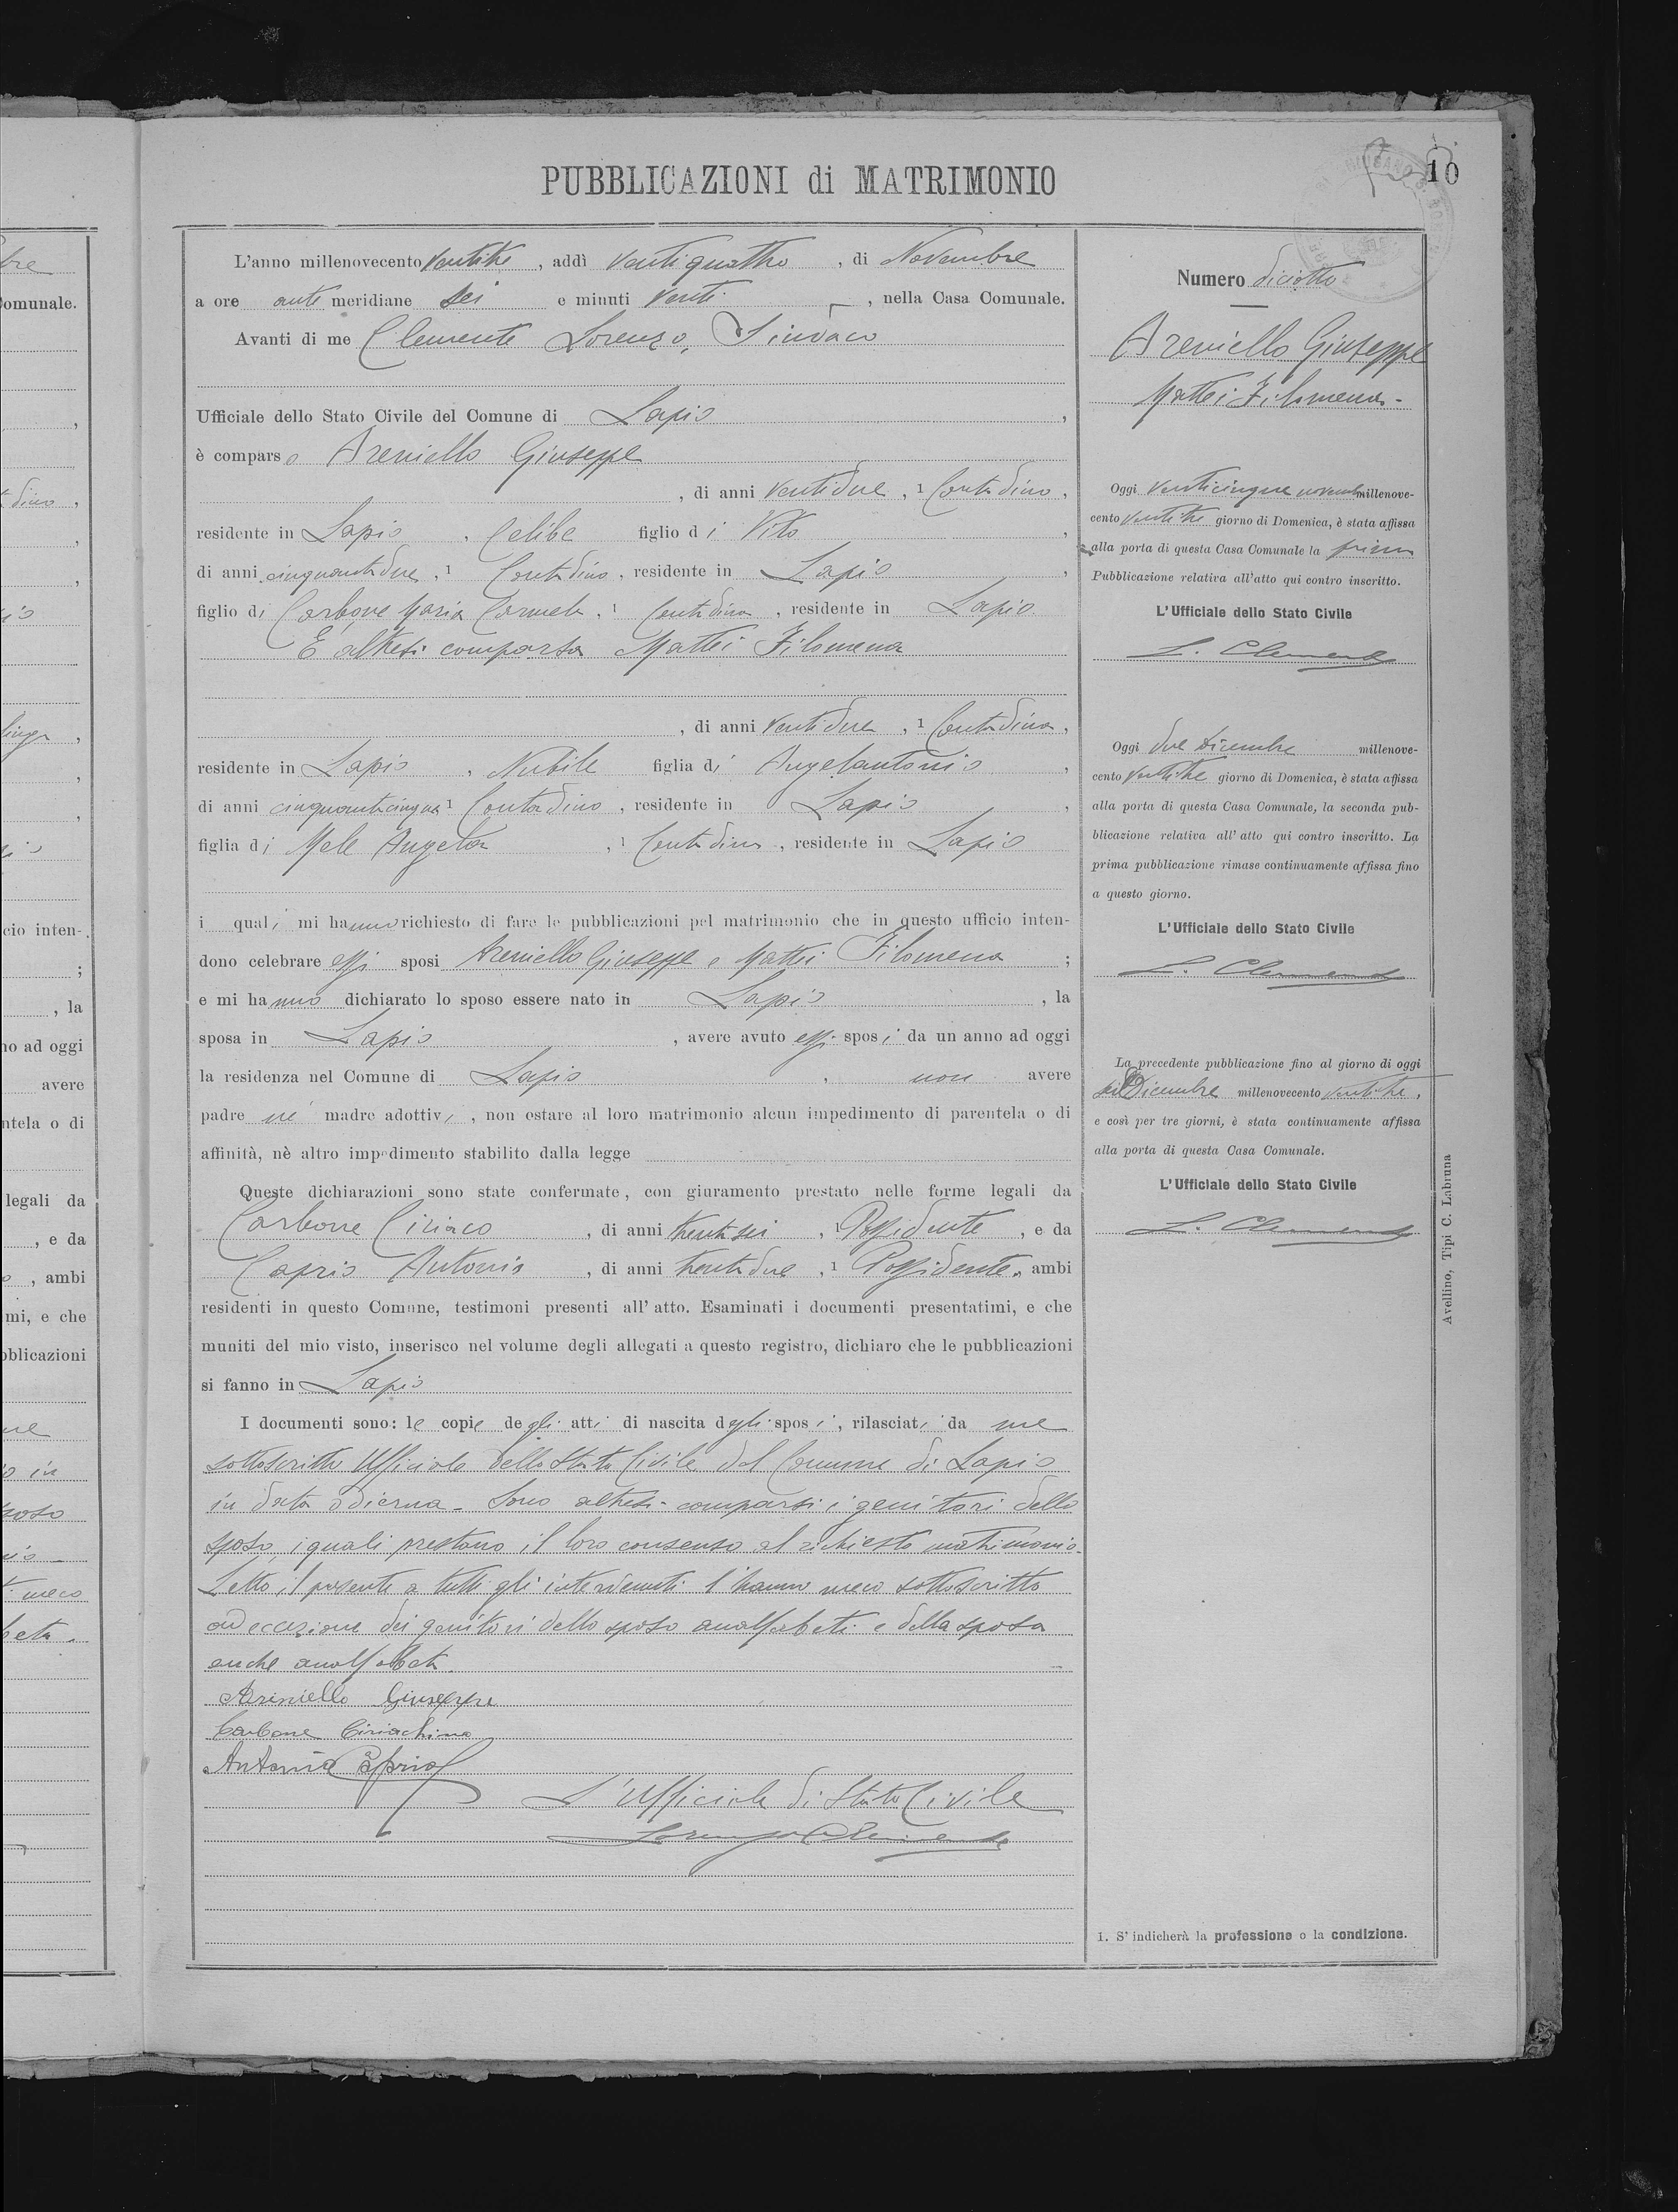 PUBBLICAZIONI di MATRIMONIO
10
L'anno millenovecento ventitre, addì ventiquattro, di Novembre
a ore anti meridiane sei e minuti venti, nella Casa Comunale.
Avanti di me Clemente Lorenzo, Sindaco
Ufficiale dello Stato Civile del Comune di Lapio,
è comparso Areniello Giuseppe
, di anni ventidue, 1 Contadino,
residente in Lapio, Celibe figlio di Vito,
di anni cinquantadue, 1 Contadino, residente in Lapio,
figlio di Carbone Maria Carmela, 1 Contadina, residente in Lapio
È altresì comparsa Mattei Filomena
, di anni ventidue, 1 Contadina,
residente in Lapio, Nubile figlia di Angelantonio,
di anni cinquantacinque 1 Contadino, residente in Lapio,
figlia di Mele Angela, 1 Contadina, residente in Lapio
i quali mi hanno richiesto di fare le pubblicazioni pel matrimonio che in questo ufficio inten-
dono celebrare essi sposi Areniello Giuseppe e Mattei Filomena;
e mi hanno dichiarato lo sposo essere nato in Lapio, la
sposa in Lapio, avere avuto essi sposi da un anno ad oggi
la residenza nel Comune di Lapio, non avere
padre nè madre adottivi, non ostare al loro matrimonio alcun impedimento di parentela o di
affinità, nè altro impedimento stabilito dalla legge
Queste dichiarazioni sono state confermate, con giuramento prestato nelle forme legali da
Carbone Ciriaco, di anni trentasei, 1 Possidente, e da
Caprio Antonio, di anni trentadue, 1 Possidente, ambi
residenti in questo Comune, testimoni presenti all'atto. Esaminati i documenti presentatimi, e che
muniti del mio visto, inserisco nel volume degli allegati a questo registro, dichiaro che le pubblicazioni
si fanno in Lapio
I documenti sono: le copie degli atti di nascita degli sposi, rilasciati da me
sottoscritto Ufficiale dello Stato Civile del Comune di Lapio
in data odierna - Sono altresì comparsi i genitori dello
sposo, i quali prestano il loro consenso al richiesto matrimonio.
Letto il presente a tutti gli intervenuti l'hanno meco sottoscritto
ad eccezione dei genitori dello sposo analfabeti e della sposa
anche analfabeta.
Areniello Giuseppe
Carbone Ciriachino
Antonio Caprio
L'Ufficiale di Stato Civile
Lorenzo Clemente
Numero diciotto
Areniello Giuseppe
Mattei Filomena -
Oggi venticinque novembre millenove-
cento ventitre giorno di Domenica, è stata affissa
alla porta di questa Casa Comunale la prima
Pubblicazione relativa all'atto qui contro inscritto.
L'Ufficiale dello Stato Civile
L. Clemente
Oggi due dicembre millenove-
cento ventitre giorno di Domenica, è stata affissa
alla porta di questa Casa Comunale, la seconda pub-
blicazione relativa all'atto qui contro inscritto. La
prima pubblicazione rimase continuamente affissa fino
a questo giorno.
L'Ufficiale dello Stato Civile
L. Clemente
La precedente pubblicazione fino al giorno di oggi
sei Dicembre millenovecento ventitre,
e così per tre giorni, è stata continuamente affissa
alla porta di questa Casa Comunale.
L'Ufficiale dello Stato Civile
L. Clemente
1. S'indicherà la professione o la condizione.
Avellino, Tipi C. Labruna